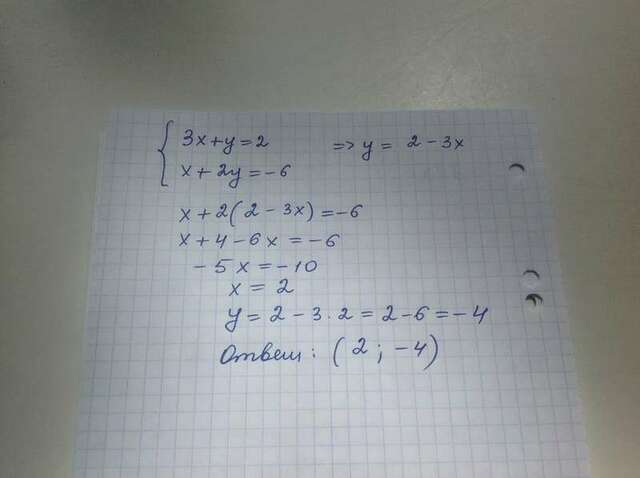 3x+y=2 => y= 2-3x
x+2y=-6
x+2(2-3x)=-6
x+4-6x=-6
-5x=-10
x=2
y=2-3·2=2-6=-4
Ответ: (2; -4)